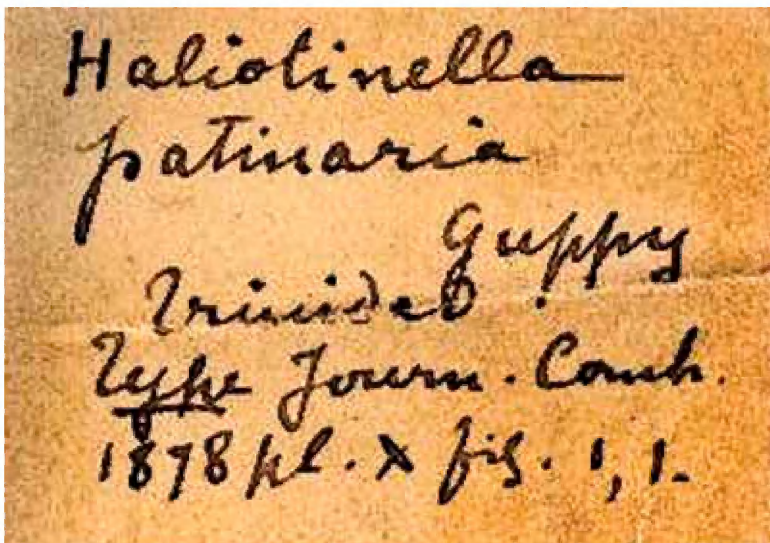 Haliotinella
patinaria
Guppy
Trinidad.
Type Journ. Conch.
1878 pl. X fig. 1, 1.